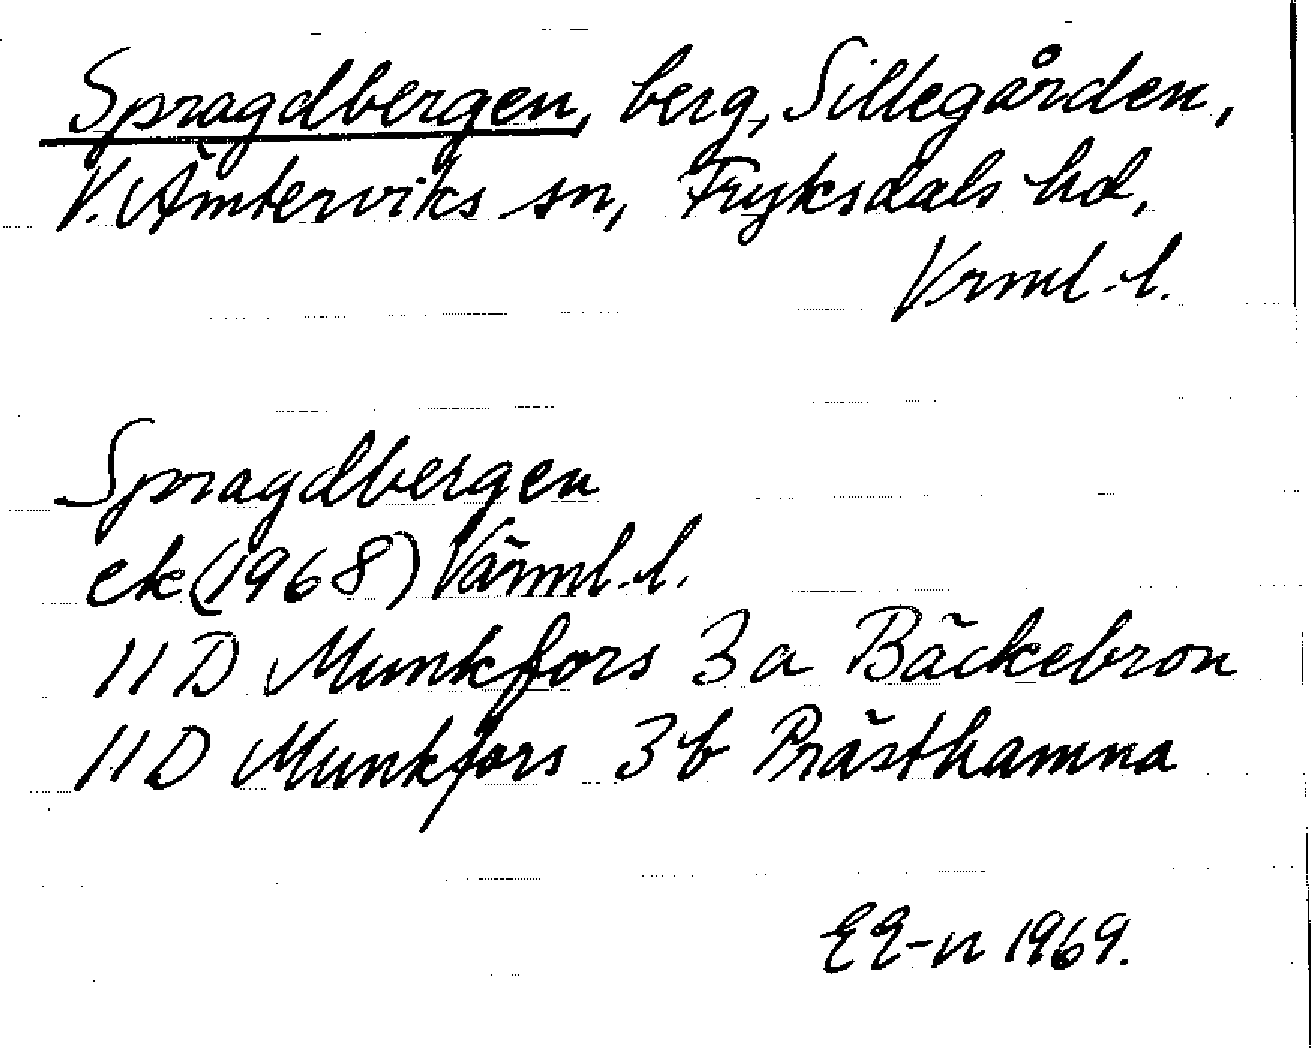 Spragdbergen, berg, Sillegården,
V. Ämterviks sn, Fryksdals hd,
Vrml. l.
Spragdbergen
ek (1968) Värml. l.
11 D Munkfors 3a Bäckebron
11 D Munkfors 3b Prästhamna
EE-n 1969.